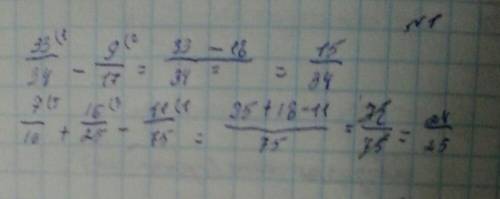 №1
33/34 - 9/17 = 33 - 18/34 = 15/34
7/10 + 16/25 - 11/75 = 35 + 18 - 11/75 = /75 = /25